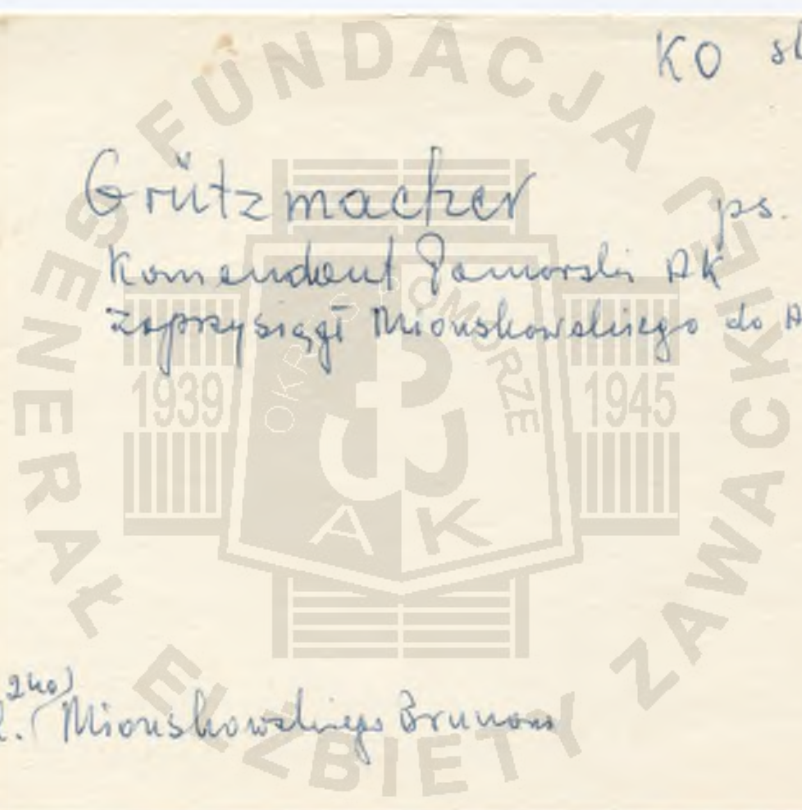 KO
Grützmacher ps.
Komendant Pomorski AK
zaprzysiągł Mionskowskiego do A
Mionskowskiego Brunona
FUNDACJA
GENERAŁ ELŻBIETY ZAWACKIEJ
OKRĘG POMORZE
1939
1945
AK